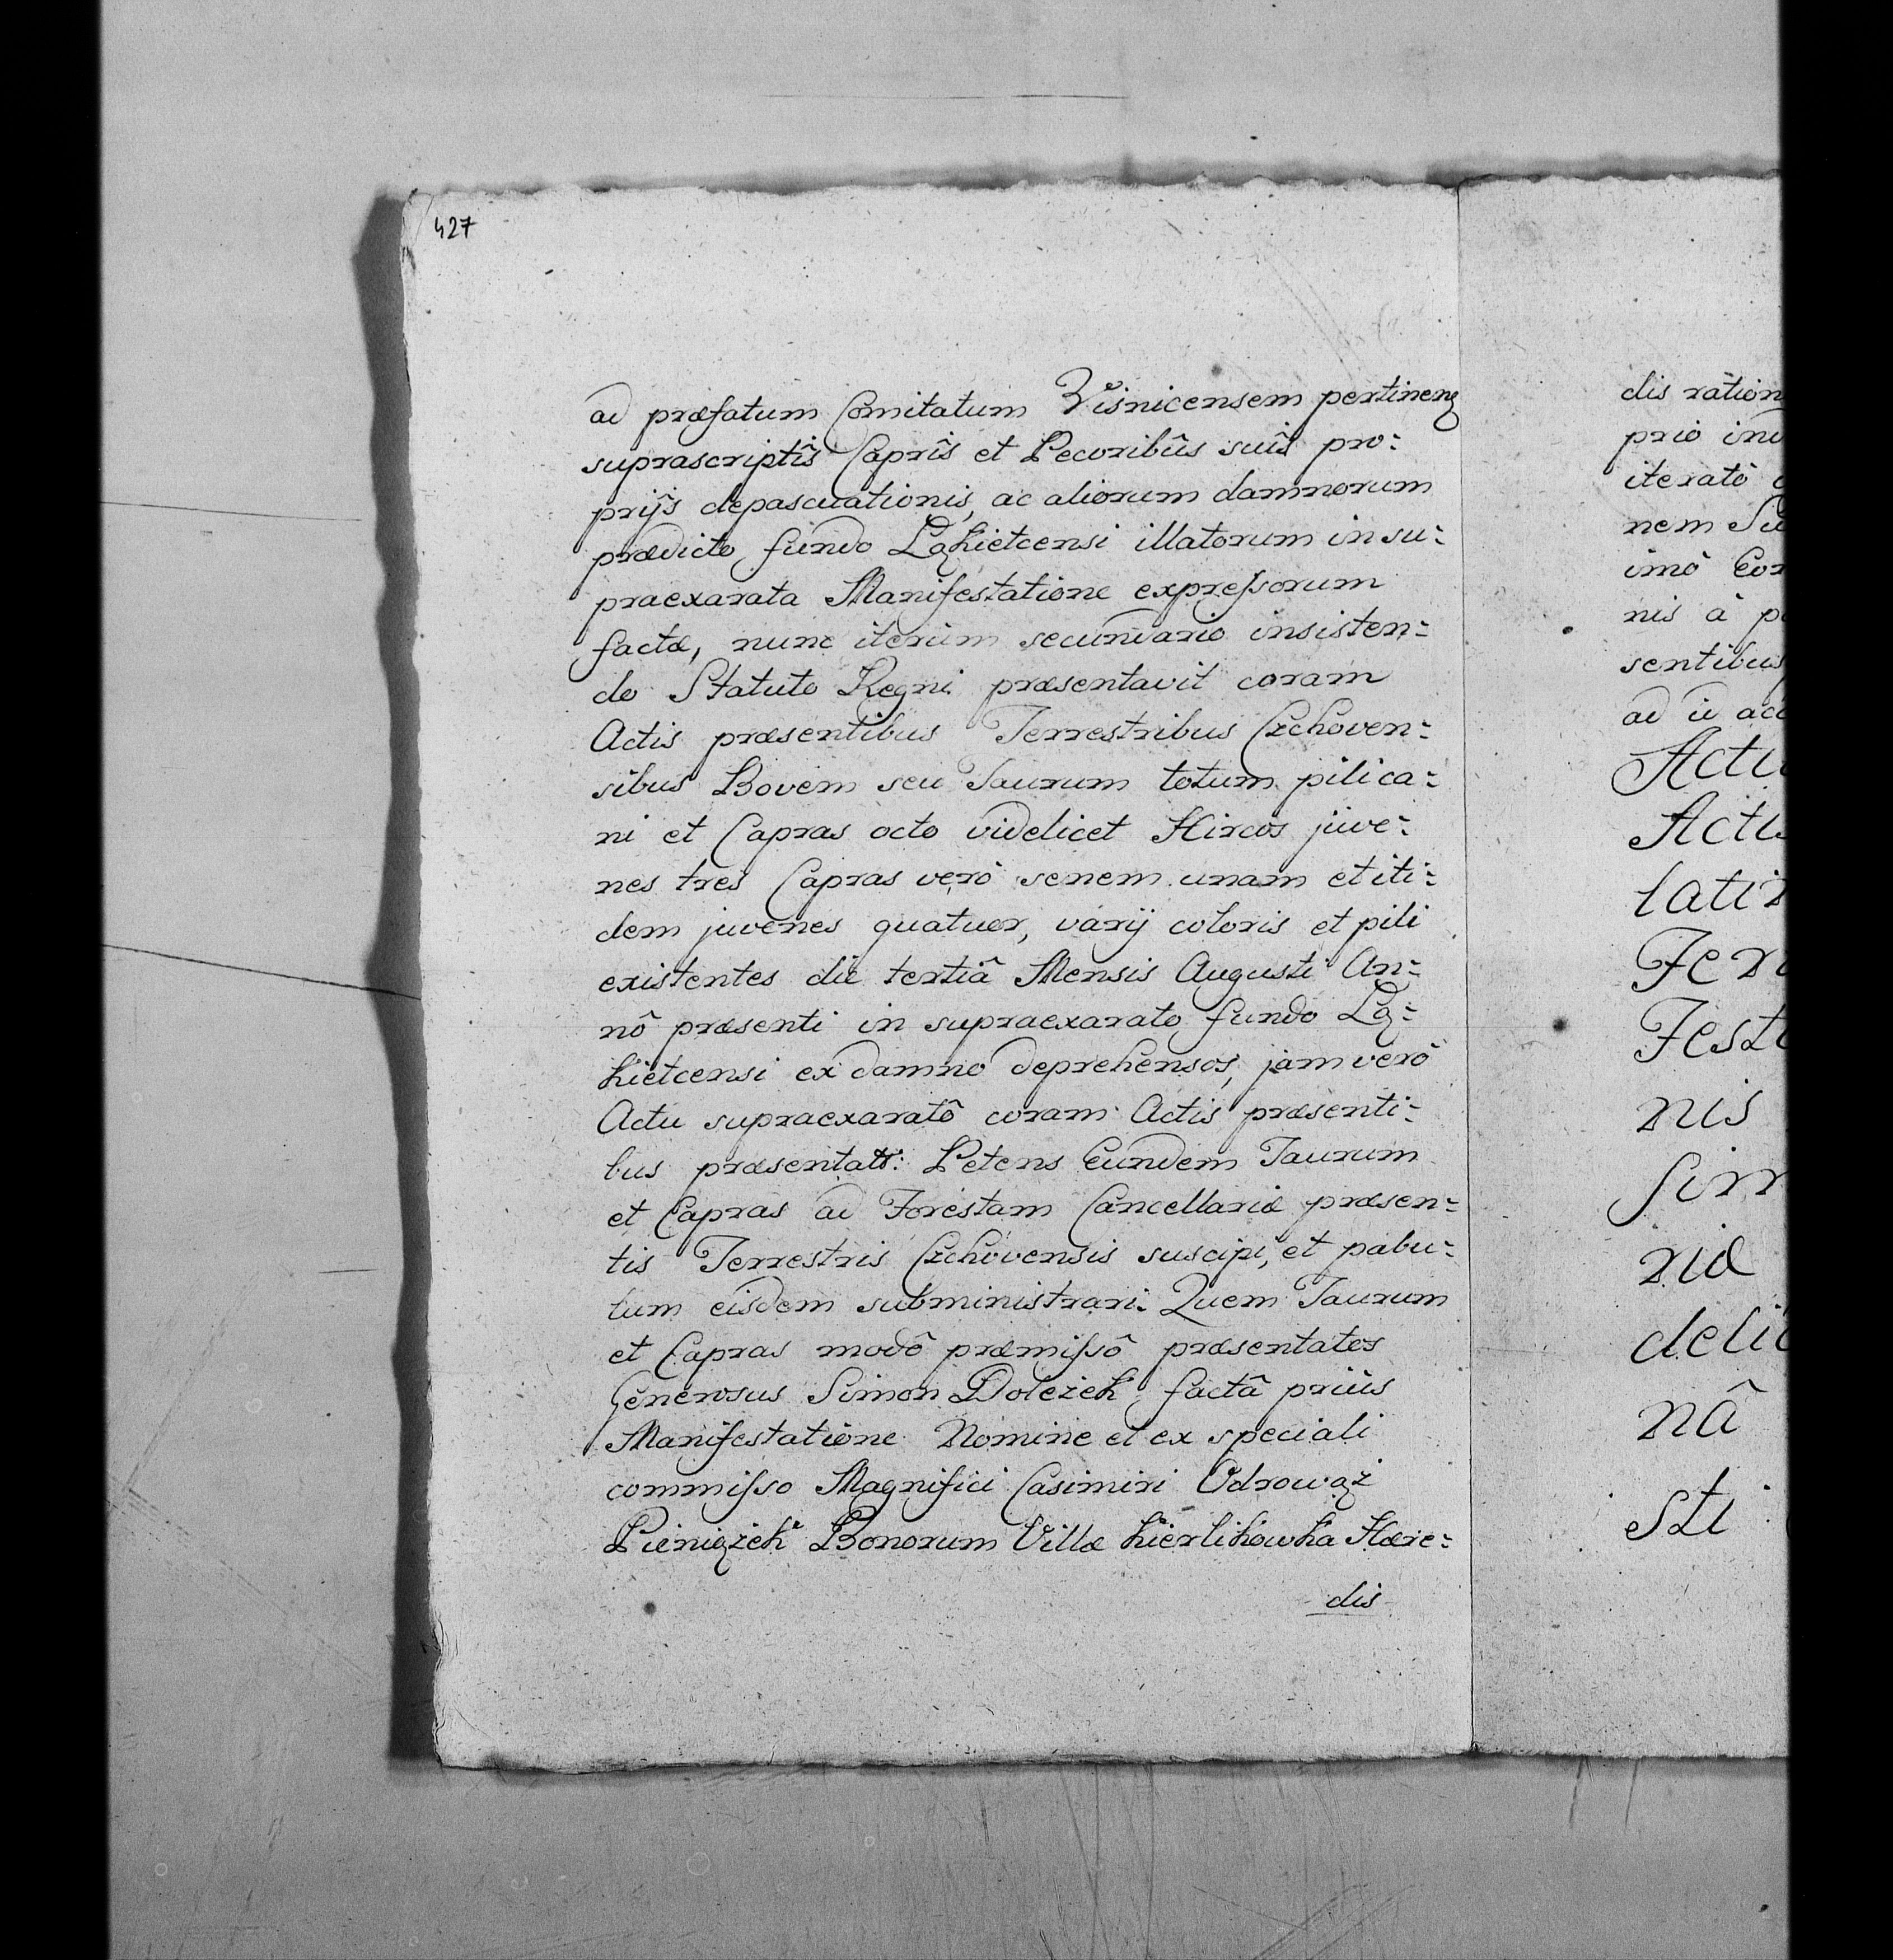 427
ad præfatum Comitatum Visnicensem pertinen
suprascriptîs Caprîs et Pecoribûs suîs pro:
prijs depascuationis, ac aliorum damnorum
prædicto fundo Łąkietcensi illatorum in su:
praexarata Manifestatione expressorum
factæ, nunc iterùm secundario insisten:
do Statuto Regni præsentavit coram
Actis præsentibus Terrestribus Czchoven:
sibus Bovem seu Taurum totum pili ca:
ni et Capras octo videlicet Hircos juve:
nes tres Capras verò senem unam et iti:
dem juvenes quatuor, varij coloris et pili
existentes die tertiâ Mensis Augusti An:
nô præsenti in supraexarato fundo Łą:
kietcensi ex damno deprehensos, jam verò
Actu supraexaratô coram Actis præsenti:
bus præsentat: Petens Eundem Taurum
et Capras ad Forestam Cancellariæ præsen:
tis Terrestris Czchovensis suscipi, et pabu:
lum eisdem subministrari. Quem Taurum
et Capras modô præmissô præsentatos
Generosus Simon Doleżek factâ priùs
Manifestatione Nomine et ex speciali
commisso Magnifici Casimiri Odrowąż
Pieniążek Bonorum Villæ Kierlikowka Hære:
dis
dis ration
prio
iteratò
nem
imò
nis à
sentibus
ad
nis
riæ
nâ
sti